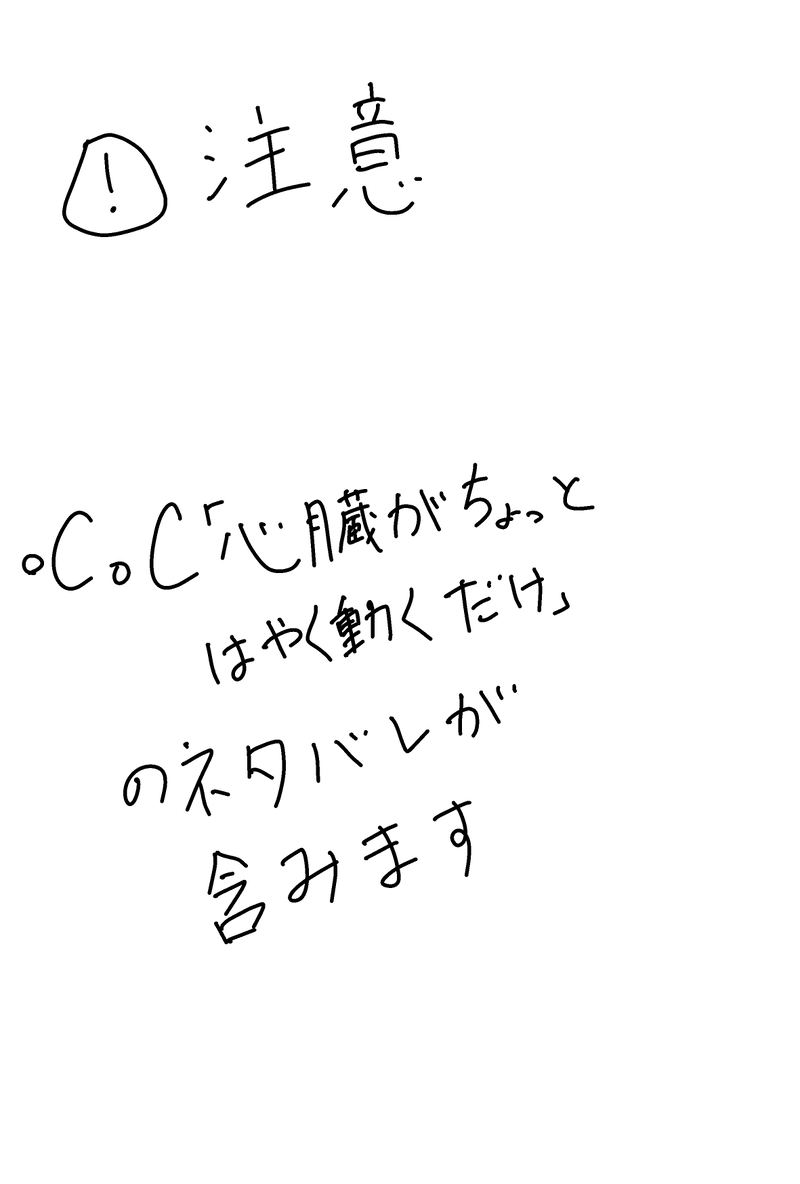 ! 注意
・CoC「心臓がちょっと
はやく動くだけ」
のネタバレが
含みます